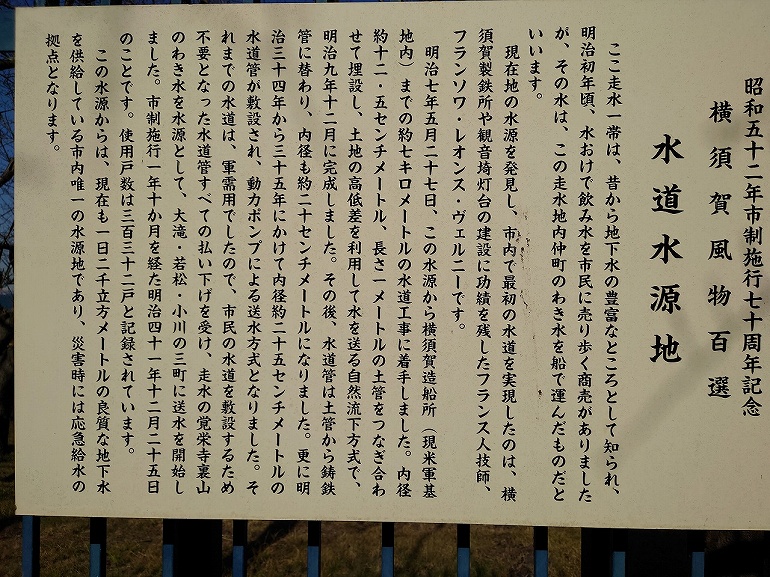 昭和五十二年市制施行七十周年記念
横須賀風物百選
水道水源地
ここ走水一帯は、昔から地下水の豊富なところとして知られ、
明治初年頃、水おけで飲み水を市民に売り歩く商売がありました
が、その水は、この走水地内仲町のわき水を船で運んだものだと
いいます。
現在地の水源を発見し、市内で最初の水道を実現したのは、横
須賀製鉄所や観音埼灯台の建設に功績を残したフランス人技師、
フランソワ・レオンス・ヴェルニーです。
明治七年五月二十七日、この水源から横須賀造船所(現米軍基
地内)までの約七キロメートルの水道工事に着手しました。内径
約十二・五センチメートル、長さ一メートルの土管をつなぎ合わ
せて埋設し、土地の高低差を利用して水を送る自然流下方式で、
明治九年十二月に完成しました。その後、水道管は土管から鋳鉄
管に替わり、内径も約二十センチメートルになりました。更に明
治三十四年から三十五年にかけて内径約二十五センチメートルの
水道管が敷設され、動力ポンプによる送水方式となりました。そ
れまでの水道は、軍需用でしたので、市民の水道を敷設するため
不要となった水道管すべての払い下げを受け、走水の覚栄寺裏山
のわき水を水源として、大滝・若松・小川の三町に送水を開始し
ました。市制施行一年十か月を経た明治四十一年十二月二十五日
のことです。使用戸数は三百三十二戸と記録されています。
この水源からは、現在も一日二千立方メートルの良質な地下水
を供給している市内唯一の水源地であり、災害時には応急給水の
拠点となります。